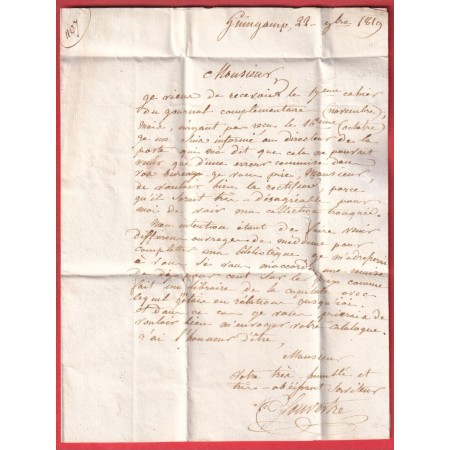 1107
Guingamp, 22 - xbre 1819
Monsieur
je viens de recevoir le 17eme cahier
du journal complementaire (novembre)
Mais, n'ayant pas recus le 16eme (octobre)
je me suis informé au directeur de la
poste qui m'a dit que cela ne pouvait
venir que d'une erreur commise dans
vos bureaux je vous prie, Monsieur
de vouloir bien la rectifier, parce
qu'il serait tres-désagreable pour
moi de voir ma collection tronquée.
Mon intention étant de faire venir
differens ouvrages de médecine pour
completer ma bibliotèque, je m'adresserai
à vous si vous m'accordez une remise
de dix pour cent sur le prix comme
fait un libraire de la capitale avec
lequel j'étais en relations jusqu'ici.
et dans ce cas je vous prierais de
vouloir bien m'envoyer votre catalogue.
j'ai l'honneur d'être,
Monsieur
Votre très-humble et
très-obéissant serviteur
Souvestre